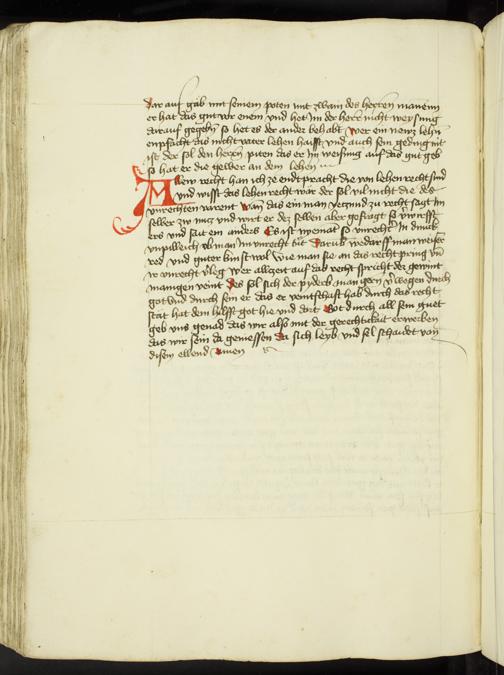 dar auf gab mit seinem poten mit zwain des herren mannen
er hat das gut vor enem vnd het im der herr nicht weysung
darauf gegeben so het es der ander behabt Wer ein newz lehen
enpfächt das nicht vater lehen haisst vnd auch sein geding nit
ist der sol den herren piten das er im weisung auf das gut geb
so hat er die gelber an dem lehen
Allew recht han ich ze endt pracht die von lehen recht sind
vnd wisst das lehen recht war der sol vil nicht die des
vnrechten varent Wan das ein man yeczund zu recht sagt im
selber zw nucz vnd wirt er dez selben aber gefragt so
ers vnd sait ein anders Es ist nyemat so vnrecht
vnpilleich ob man im vnrecht tut Darumb bedarff man weyser
red vnd guter kunst wol wie man sie an das recht pring
Wer allczeit auf das recht spricht der gewint
manigen veint des sol sich der pyderb man gern wegen durch
got vnd durch sein er das er veintschaft hab durch das recht
hat dem hilfft got hie vnd dort Got durch all sein guet
geb vns genad das wir also mit der gerechtikait erwerben
das wir sein da geniessen Da sich leyb vnd sel schaident von
disem ellend Amen